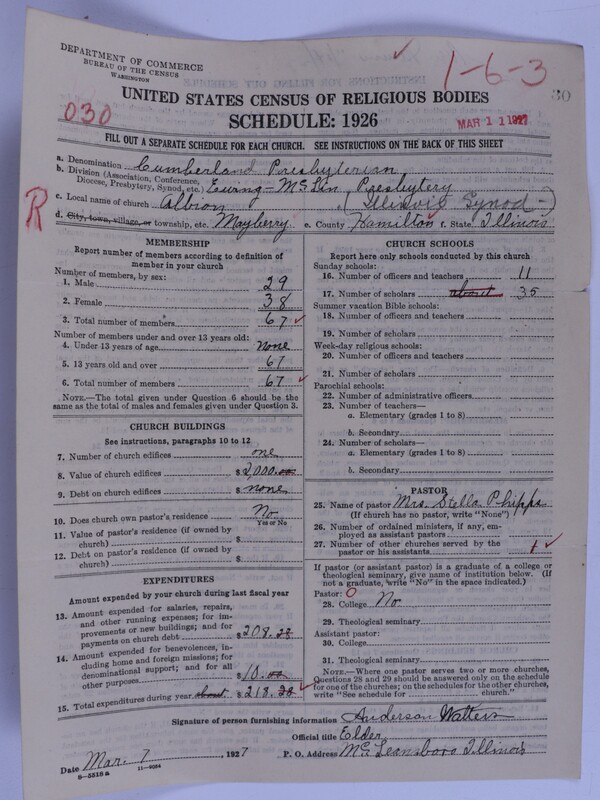 DEPARTMENT OF COMMERCE
BUREAU OF THE CENSUS
WASHINGTON
1-6-3
30
UNITED STATES CENSUS OF RELIGIOUS BODIES
030
SCHEDULE: 1926
MAR 11 1927
FILL OUT A SEPARATE SCHEDULE FOR EACH CHURCH. SEE INSTRUCTIONS ON THE BACK OF THIS SHEET
a. Denomination Cumberland Presbyterian
b. Division (Association, Conference, Diocese, Presbytery, Synod, etc.) Ewing-McLin Presbytery
R
c. Local name of church Albion (Illinois Synod-)
d. City, town, village, or township, etc. Mayberry e. County Hamilton f. State Illinois
MEMBERSHIP
Report number of members according to definition of member in your church
Number of members, by sex:
1. Male 29
2. Female 38
3. Total number of members 67
Number of members under and over 13 years old:
4. Under 13 years of age none
5. 13 years old and over 67
6. Total number of members 67
NOTE.—The total given under Question 6 should be
same as the total of males and females given under Question 3.
CHURCH BUILDINGS
See instructions, paragraphs 10 to 12
7. Number of church edifices one
8. Value of church edifices $2,000.00
9. Debt on church edifices $ none
10. Does church own pastor's residence No
Yes or No
11. Value of pastor's residence (if owned by
church) $
12. Debt on pastor's residence (if owned by
church) $
EXPENDITURES
Amount expended by your church during last fiscal year
13. Amount expended for salaries, repairs,
and other running expenses; for im-
provements or new buildings; and for
payments on church debt $208.28
14. Amount expended for benevolences, in-
cluding home and foreign missions; for
denominational support; and for all
other purposes $10.00
15. Total expenditures during year about $218.28
CHURCH SCHOOLS
Report here only schools conducted by this church
Sunday schools:
16. Number of officers and teachers 11
17. Number of scholars about 35
Summer vacation Bible schools:
18. Number of officers and teachers
19. Number of scholars
Week-day religious schools:
20. Number of officers and teachers
21. Number of scholars
Parochial schools:
22. Number of administrative officers
23. Number of teachers—
a. Elementary (grades 1 to 8)
b. Secondary
24. Number of scholars—
a. Elementary (grades 1 to 8)
b. Secondary
PASTOR
25. Name of pastor Mrs. Stella Phipps
(If church has no pastor, write "None")
26. Number of ordained ministers, if any, em-
ployed as assistant pastors
27. Number of other churches served by the
pastor or his assistants 1
If pastor (or assistant pastor) is a graduate of a college or
theological seminary, give name of institution below. (If
not a graduate, write "No" in the space indicated.)
Pastor: O
28. College No
29. Theological seminary
Assistant pastor:
30. College
31. Theological seminary
NOTE.—Where one pastor serves two or more churches,
Questions 28 and 29 should be answered only on the schedule
for one of the churches; on the schedules for the other churches,
write "See schedule for church."
Signature of person furnishing information Anderson Watters
Official title Elder
Date Mar. 7, 1927 P. O. Address McLeansboro Illinois
8-5518a 11-9024